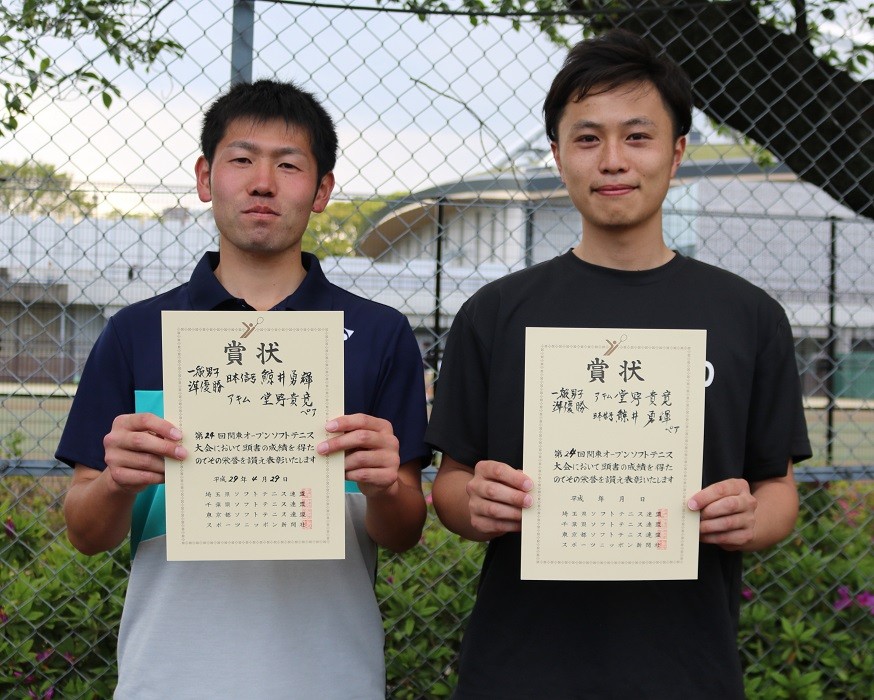 賞状
一般男子 日本信号 鯨井勇輝
準優勝 アキム 堂野貴尭
ペア
第24回関東オープンソフトテニス
大会において頭書の成績を得た
のでその栄誉を讃え表彰いたします
平成29年4月29日
埼玉県ソフトテニス連盟
千葉県ソフトテニス連盟
東京都ソフトテニス連盟
スポーツニッポン新聞社
賞状
一般男子 アキム 堂野貴尭
準優勝 日本信号 鯨井勇輝
ペア
第24回関東オープンソフトテニス
大会において頭書の成績を得た
のでその栄誉を讃え表彰いたします
平成 年 月 日
埼玉県ソフトテニス連盟
千葉県ソフトテニス連盟
東京都ソフトテニス連盟
スポーツニッポン新聞社